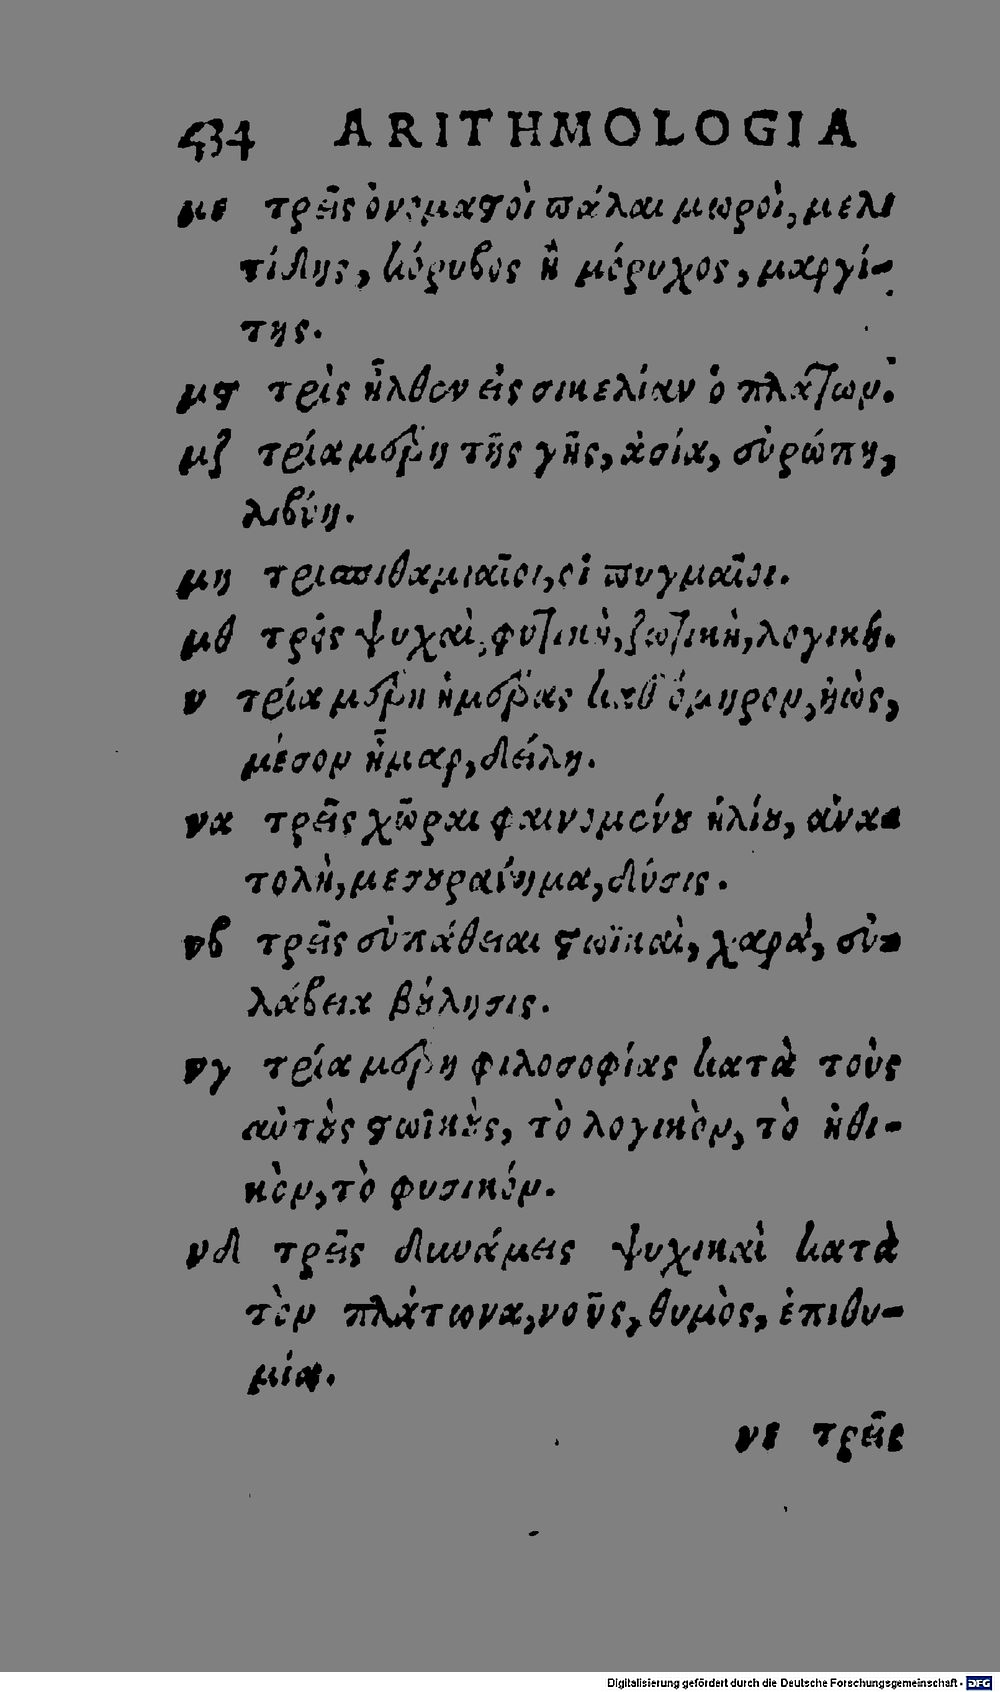 434 ARITHMOLOGIA
με τρεῖς ὀνομαστοὶ πάλαι μωροὶ, μελι
τίδης, κόρυβος ἢ μόρυχος, μαργί-
της.
μϛ τρὶς ἦλθεν εἰς σικελίαν ὁ πλάτων.
μζ τρία μέρη τῆς γῆς, ἀσία, εὐρώπη,
λιβύη.
μη τρισπιθαμιαῖοι, οἱ πυγμαῖοι.
μθ τρεῖς ψυχαὶ, φυτικὴ, ζωτικὴ, λογική.
ν τρία μέρη ἡμέρας καθ ὅμηρον, ἠὼς,
μέσον ἦμαρ, δείλη.
να τρεῖς χῶραι φαινομένου ἡλίου, ἀνα-
τολὴ, μεσουράνημα, δύσις.
νβ τρεῖς εὐπάθειαι στωϊκαὶ, χαρά, εὐ-
λάβεια βούλησις.
νγ τρία μέρη φιλοσοφίας κατὰ τοὺς
αὐτοὺς στωϊκοὺς, τὸ λογικὸν, τὸ ἠθι-
κὸν, τὸ φυσικόν.
νδ τρεῖς δυνάμεις ψυχικαὶ κατὰ
τὸν πλάτωνα, νοῦς, θυμὸς, ἐπιθυ-
μία.
νε τρεῖς
Digitalisierung gefördert durch die Deutsche Forschungsgemeinschaft - DFG